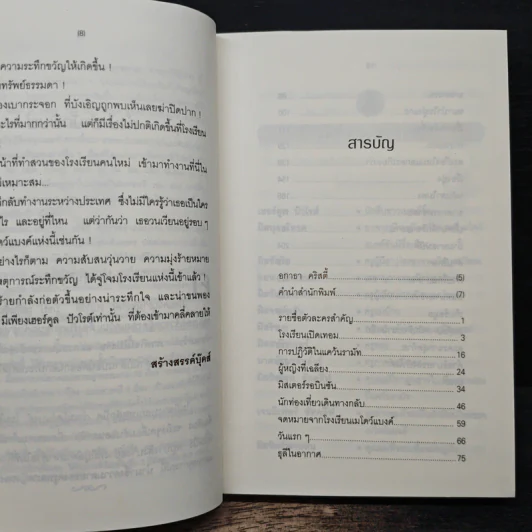 (8)
ความระทึกขวัญให้เกิดขึ้น !
ทรัพย์ธรรมดา !
องเบากระจอก ที่บังเอิญถูกพบเห็นเลยฆ่าปิดปาก !
ะไรที่มากกว่านั้น แต่ก็มีเรื่องไม่ปกติเกิดขึ้นที่โรงเรียน
น้าที่ทำสวนของโรงเรียนคนใหม่ เข้ามาทำงานที่นี่ใน
เหมาะสม...
กลับทำงานระหว่างประเทศ ซึ่งไม่มีใครรู้ว่าเธอเป็นใคร
ไร และอยู่ที่ไหน แต่ว่ากันว่า เธอวนเวียนอยู่รอบๆ
ดว์แบงค์แห่งนี้เช่นกัน !
ย่างไรก็ตาม ความสับสนวุ่นวาย ความมุ่งร้ายหมาย
ตุการณ์ระทึกขวัญ ได้จู่โจมโรงเรียนแห่งนี้เข้าแล้ว !
ร้ายกำลังก่อตัวขึ้นอย่างน่าระทึกใจ และน่าขนพอง
มีเพียงเฮอร์คูล ปัวโรต์เท่านั้น ที่ต้องเข้ามาคลี่คลายให้
สร้างสรรค์บุ๊คส์
สารบัญ
อกาธา คริสตี้ (5)
คำนำสำนักพิมพ์ (7)
รายชื่อตัวละครสำคัญ 1
โรงเรียนเปิดเทอม 3
การปฏิวัติในแคว้นรามัท 16
ผู้หญิงที่เฉลียง 24
มิสเตอร์รอบินซัน 34
นักท่องเที่ยวเดินทางกลับ 46
จดหมายจากโรงเรียนเมโดว์แบงค์ 59
วันแรก ๆ 66
ธุลีในอากาศ 75